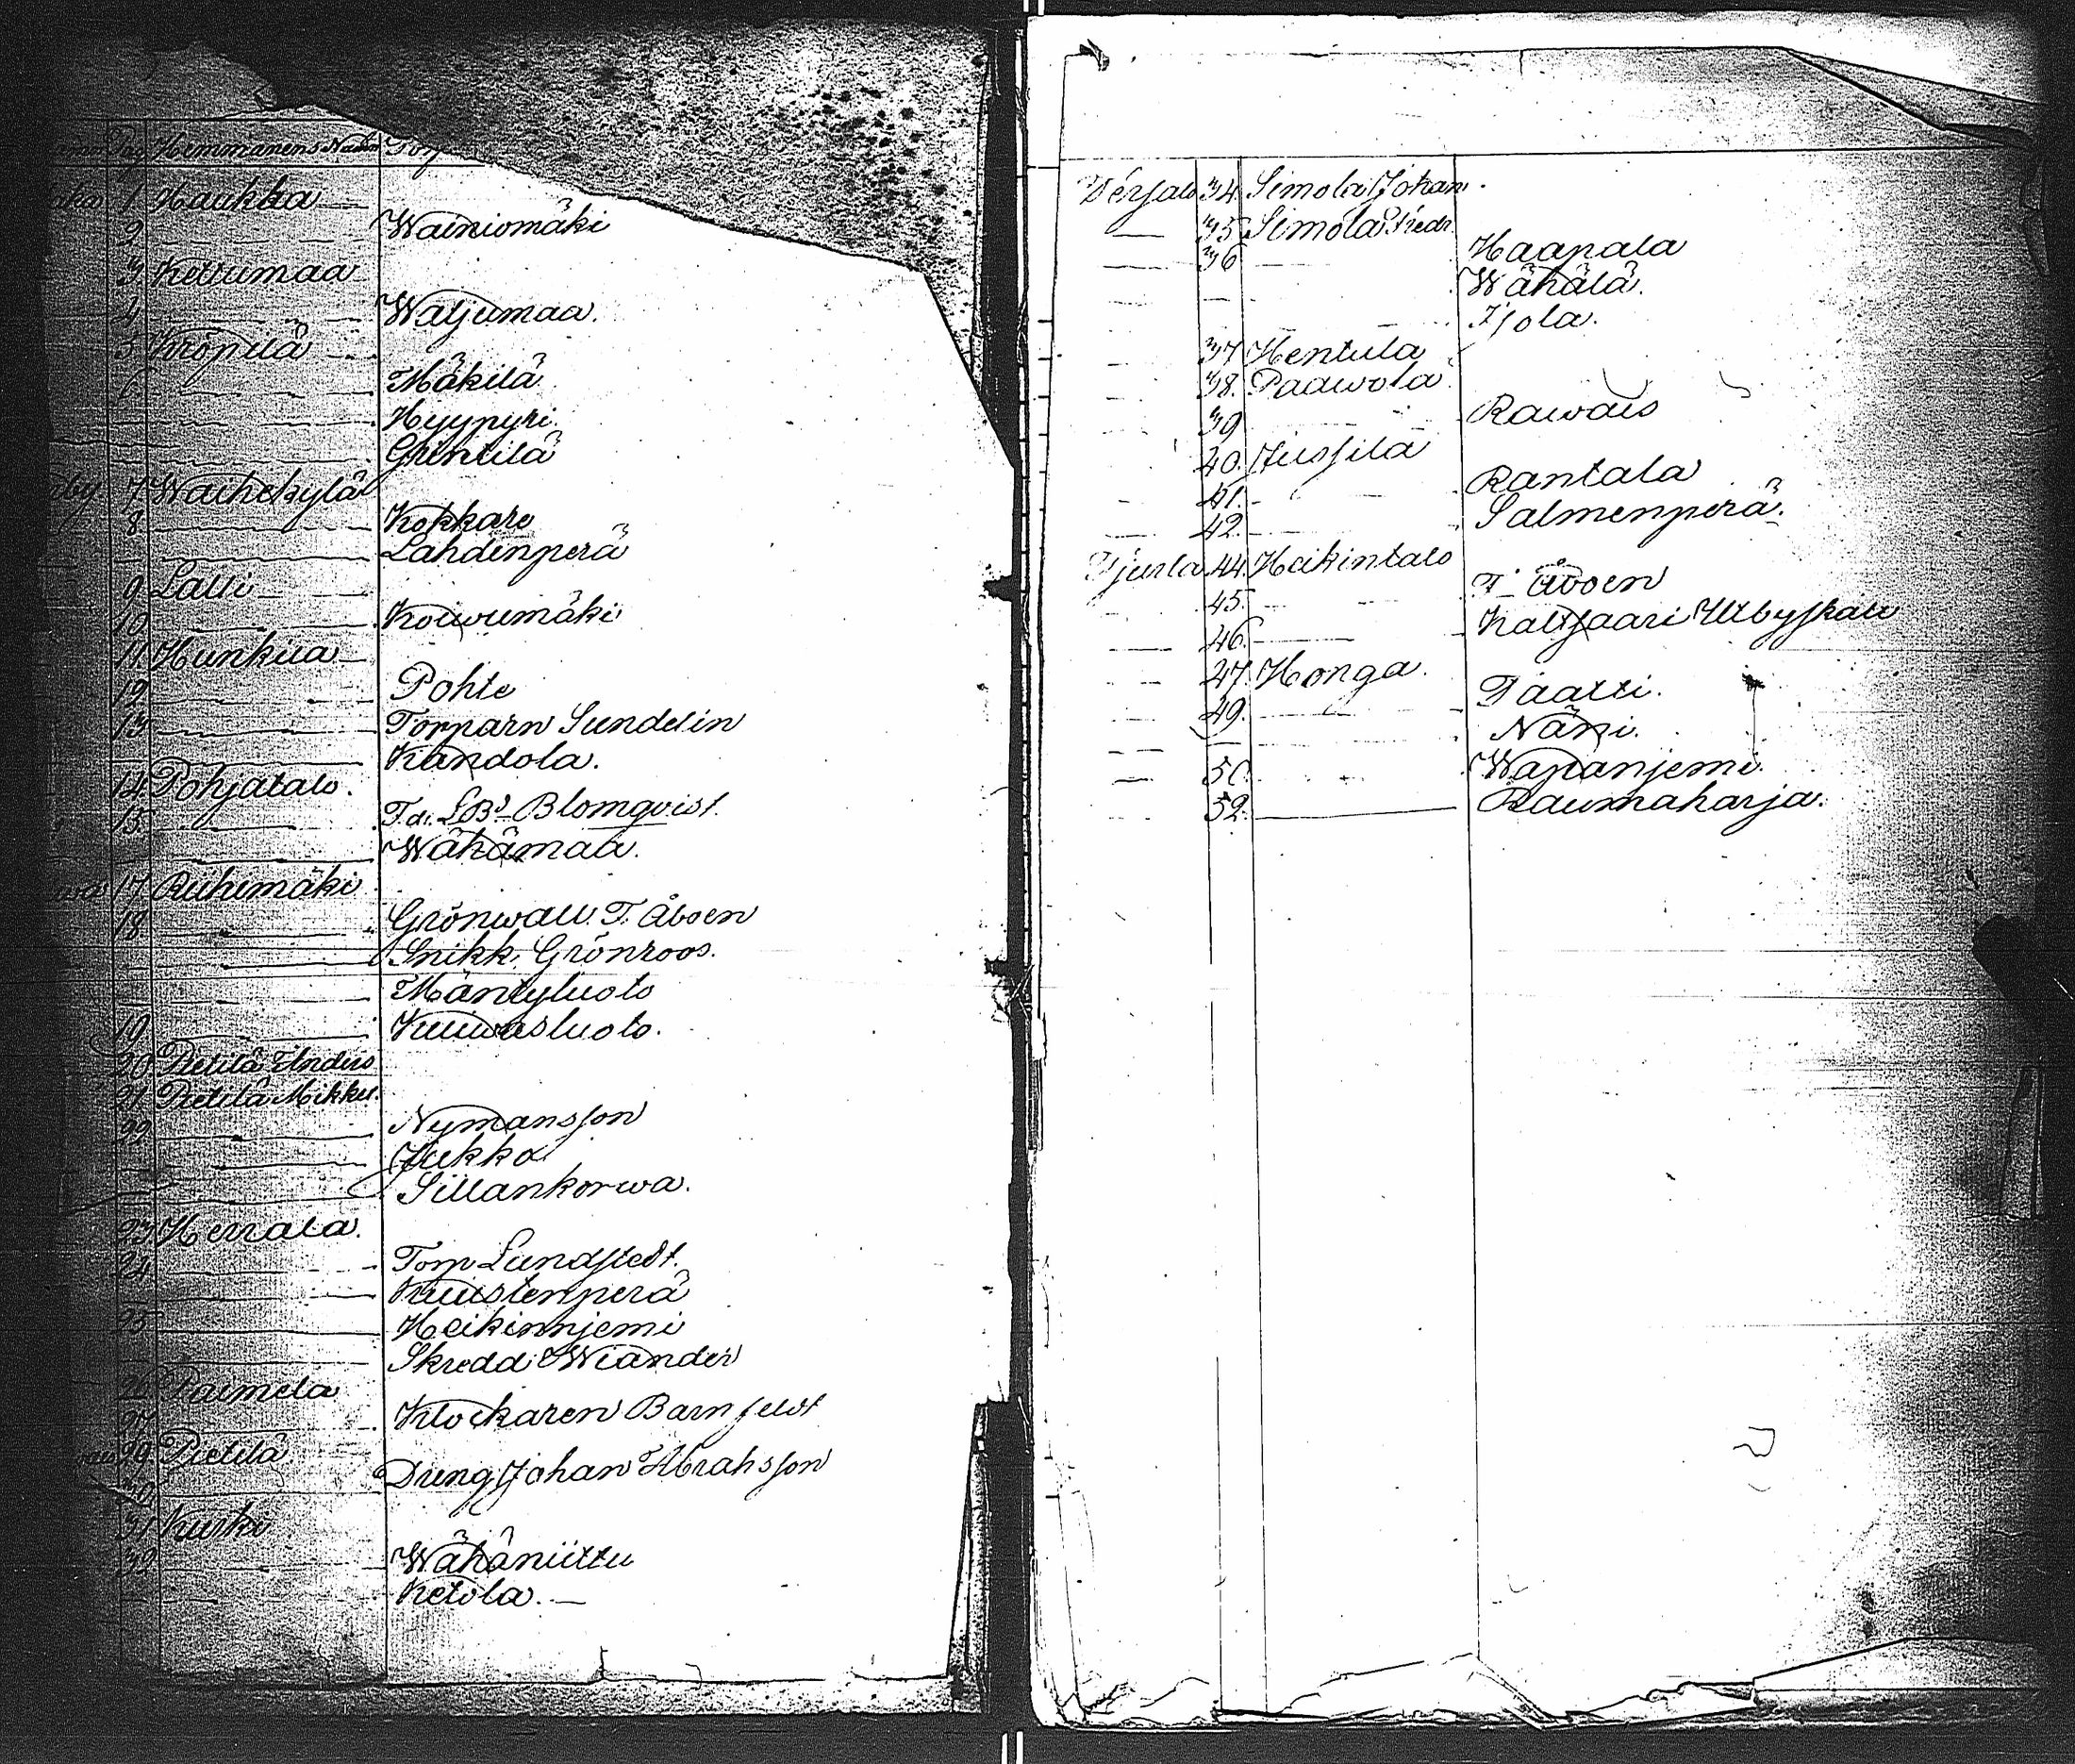 Pag Hemmanens Namn Torp
1 Haukka
2 Wainiomäki
3 Kettumaa
4 Waljumaa.
5 Kröpilä
6 Mäkilä
Hyypyri
Grintilä
7 Waihekylä
8 Kokkare
Lahdinperä
9 Lalli
10 Koiwumäki
11 Hunkua
12 Pohte
13 Torparn Sundelin
Kandola.
14 Pohjatalo.
15 Blomqvist.
Wähämaa.
17 Ruhimäki
18. Grönwall. T. Åboen
Snikk. Grönroos.
Mäntyluoto
19 Kuuwasluoto.
20 Pietilä Anders
21 Pietilä Mikkel.
22 Nymansson
Jukka
Sillankorwa.
23 Herrala.
24 Torp Lundstedt.
Kuustenperä
25 Heikinnjemi
Skredd Wiander
26 Paimela
27 Klockaren Barnfelst
29 Pietilä
30 Dreng Johan Abrahsson
31 Kurki
32 Wähäniittu
Ketola.
34. Simola Johan.
35 Simola Fredr
36 Haapala
Wähälä.
Ijola.
37 Hentula
38. Paawola
39 Rawais
40. Jussila
41. Rantala
42. Salmenperä.
Tjurla 44. Heikintalo
45. T. Åboen
46. Kaltsaari Utbyskalu
47. Honga.
49. Taatti.
Näsi.
50. Wapanjemi.
52. Raumaharja.